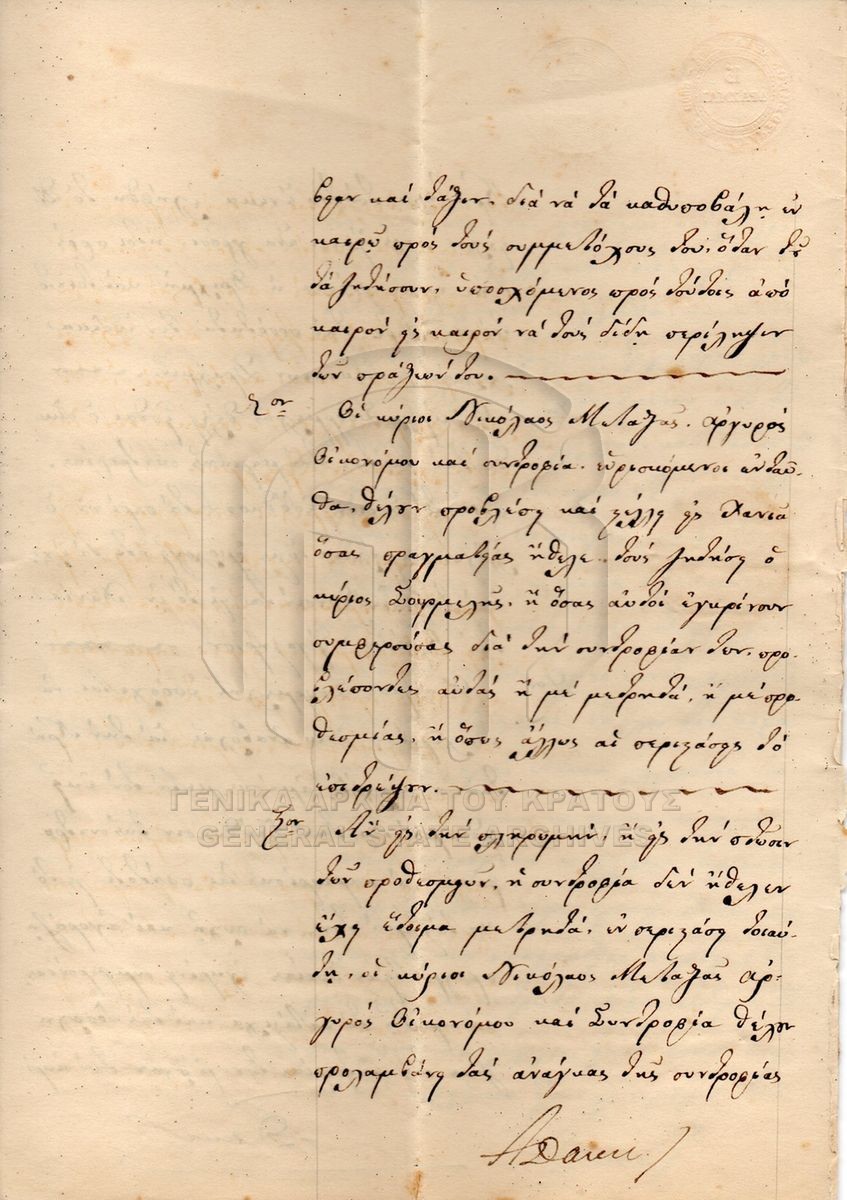 καὶ τάξιν, διὰ νὰ τὰ καθυποβάλῃ ἐν
καιρῷ πρὸς τοὺς συμμετόχους του, ὅταν τῷ
τὰ ζητήσουν, ὑποσχόμενος πρὸς τούτοις ἀπὸ
καιρὸν εἰς καιρὸν νὰ τοὺς δίδῃ περίληψιν
τῶν πράξεών του.
2ον
Οἱ κύριοι Νικόλαος Μεταξᾶς, Ἀργυρὸς
Οἰκονόμου καὶ συντροφία, εὑρισκόμενοι ἐνταῦ-
θα, θέλουν προβλέπει καὶ στέλλει εἰς Χανιὰ
ὅσας πραγματείας ἤθελε τοὺς ζητήσει ὁ
κύριος ἢ ὅσας αὐτοὶ ἐγκρίνουν
συμφερούσας διὰ τὴν συντροφίαν των, προ-
βλέποντες αὐτὰς ἢ μὲ μετρητά, ἢ μὲ προ-
θεσμίας, ἢ ὅπως ἄλλως αἱ περιστάσεις τὸ
ἐπιτρέψουν.
3ον
Ἂν εἰς τὴν πληρωμήν, ἢ εἰς τὴν πτῶσιν
τῶν προθεσμιῶν, ἡ συντροφία δὲν ἤθελεν
ἔχει ἕτοιμα μετρητά, ἐν περιστάσει τοιαύ-
τῃ, οἱ κύριοι Νικόλαος Μεταξᾶς Ἀρ-
γυρὸς Οἰκονόμου καὶ Συντροφία θέλουν
προλαμβάνει τὰς ἀνάγκας τῆς συντροφίας
ΓΕΝΙΚΑ ΑΡΧΕΙΑ ΤΟΥ ΚΡΑΤΟΥΣ
GENERAL STATE ARCHIVES